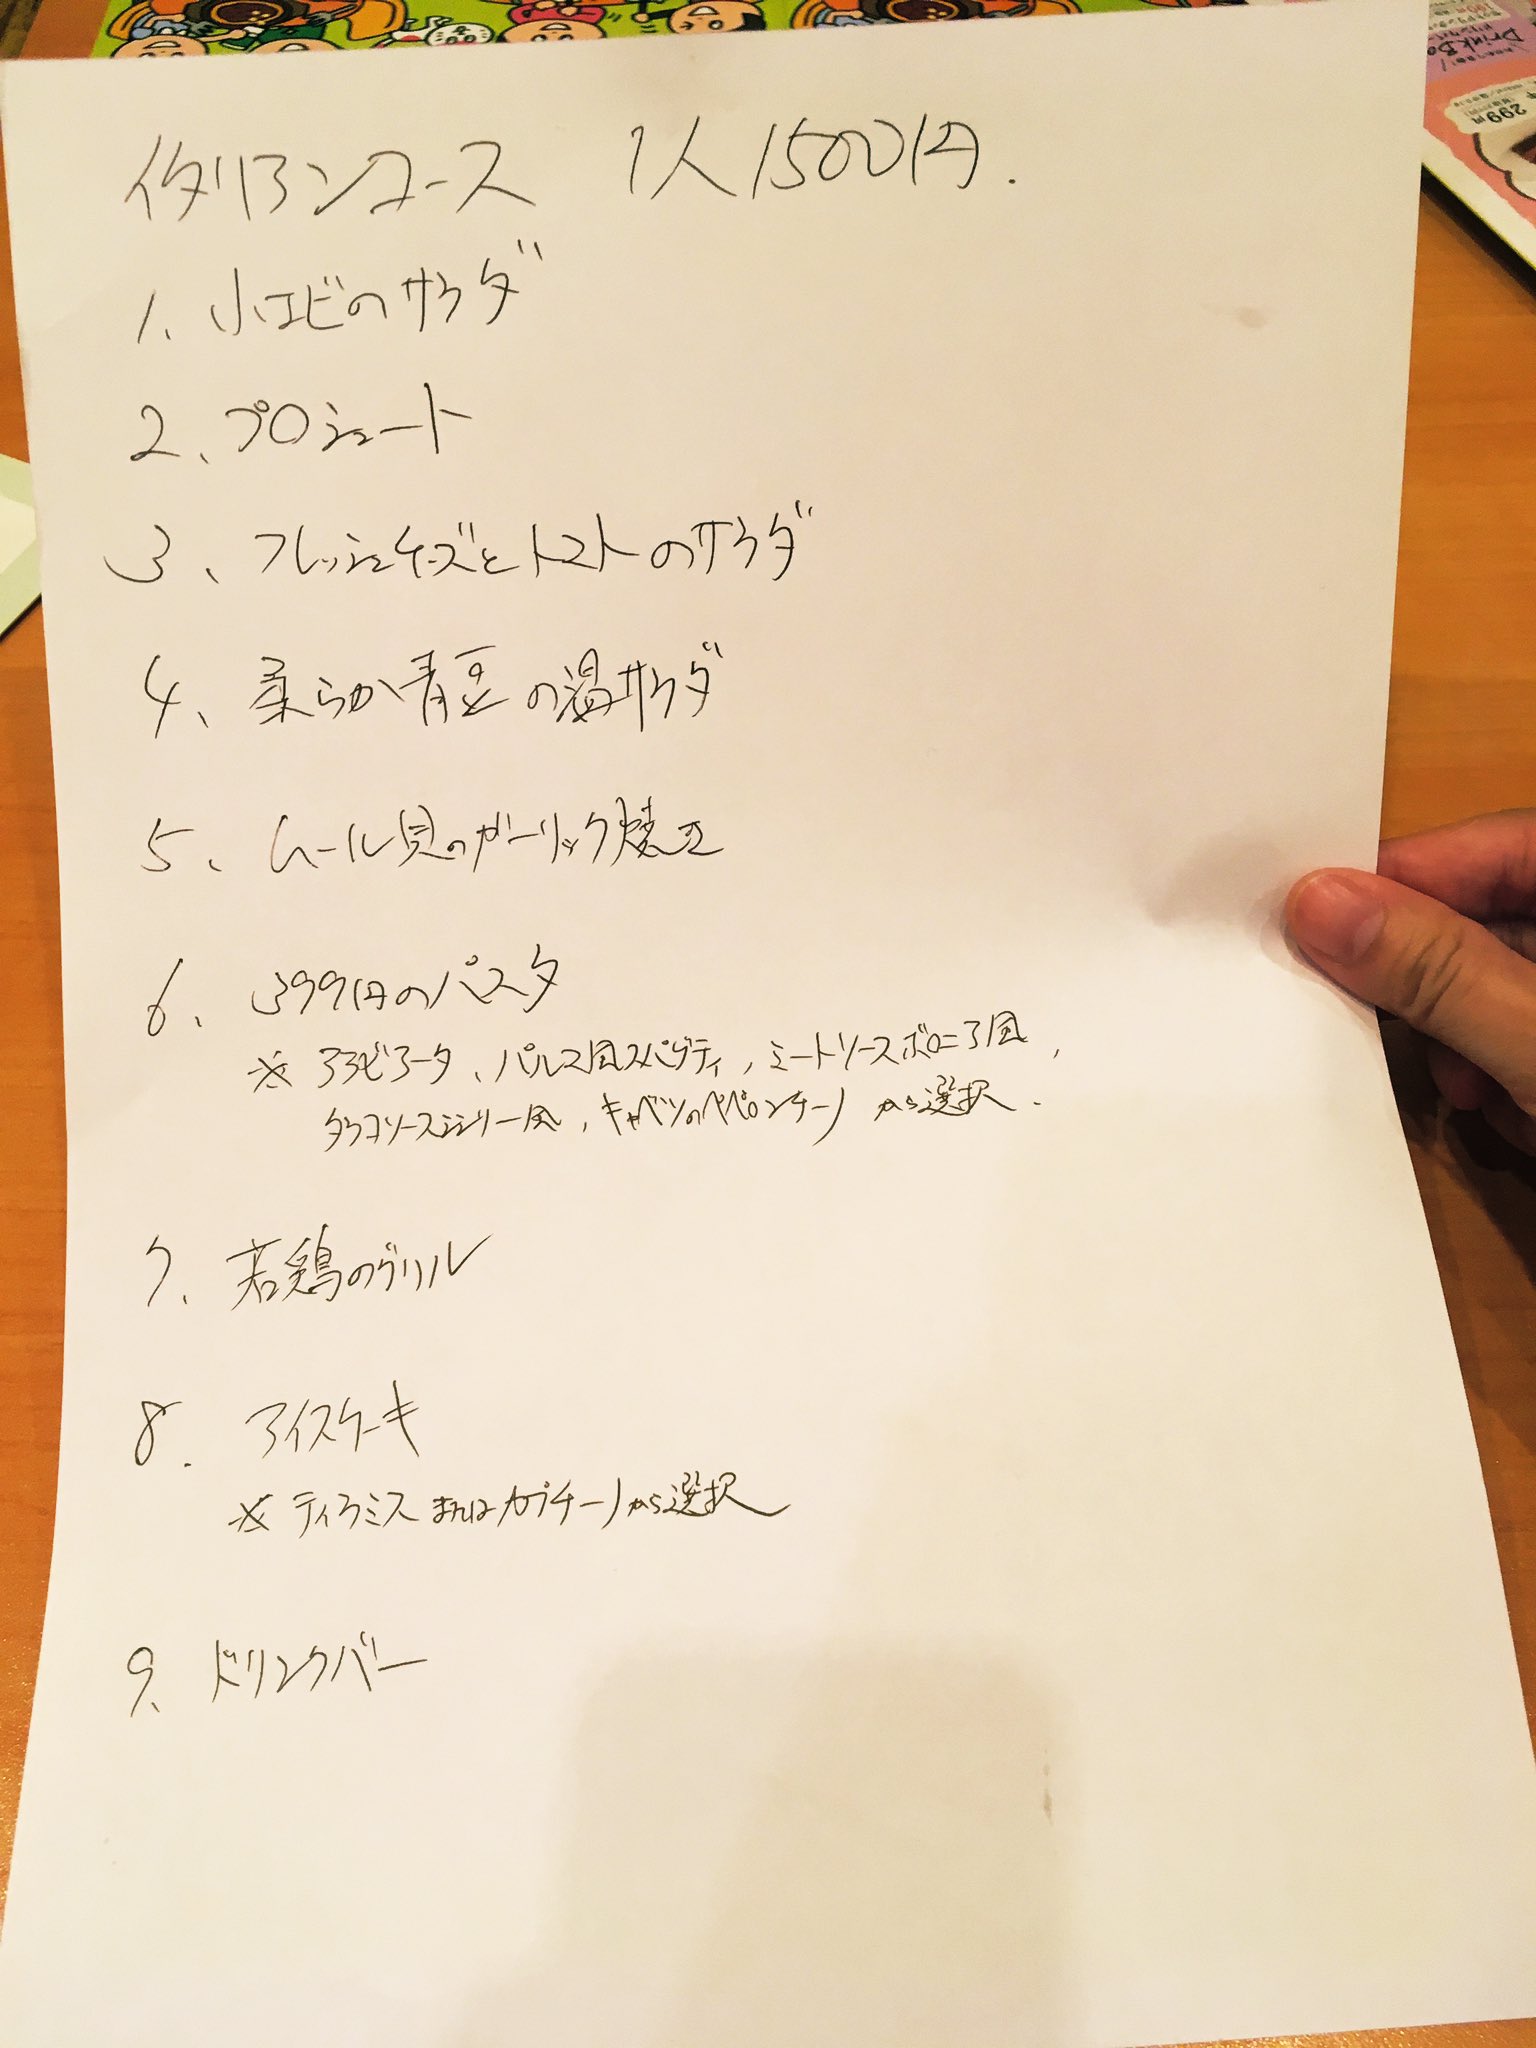 イタリアンコース 1人1500円.
1、小エビのサラダ
2、プロシュート
3、フレッシュチーズとトマトのサラダ
4、柔らか青豆の温サラダ
5、ムール貝のガーリック焼き
6、399円のパスタ
※アラビアータ、パルマ風スパゲティ,ミートソースボロニア風,
タラコソースシシリー風,キャベツのペペロンチーノから選択.
7、若鶏のグリル
8.アイスケーキ
※ティラミスまたはカプチーノから選択
9、ドリンクバー
Drink Ba
299円